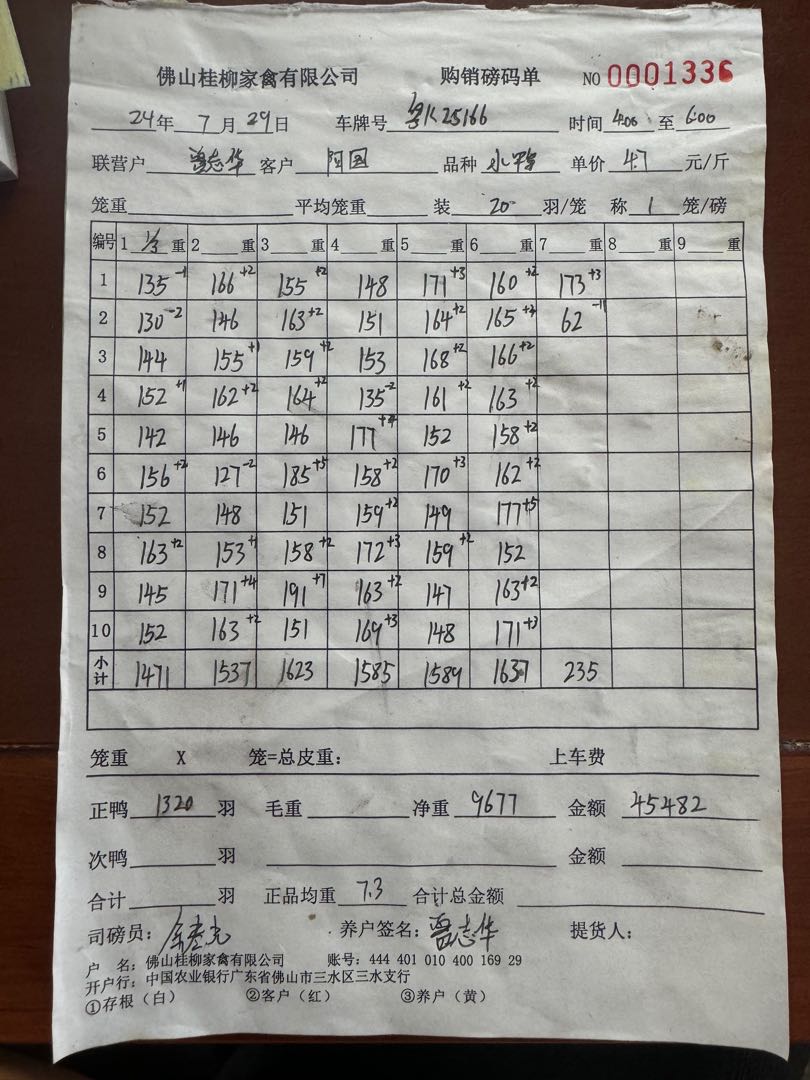 佛山桂柳家禽有限公司 购销磅码单 NO 0001336
24年 7月 29日 车牌号 粤K25166 时间 4:00 至 6:00
联营户 曾志华 客户 阿国 品种 小鸭 单价 4.7 元/斤
笼重 平均笼重 装 20 羽/笼 称 1 笼/磅
编号 1 重 2 重 3 重 4 重 5 重 6 重 7 重 8 重 9 重
1 135-1 166+2 155+2 148 171+3 160+2 173+3
2 130-2 146 163+2 151 164+2 165+2 62-11
3 144 155+1 159+2 153 168+2 166+2
4 152+1 162+2 164+2 135-2 161+2 163+2
5 142 146 146 177+4 152 158+2
6 156+2 127-2 185+5 158+2 170+3 162+2
7 152 148 151 159+2 149 177+5
8 163+2 153+1 158+2 172+3 159+2 152
9 145 171+4 191+7 163+2 147 163+2
10 152 163+2 151 169+3 148 171+3
小计 1471 1537 1623 1585 1589 1637 235
笼重 X 笼=总皮重： 上车费
正鸭 1320 羽 毛重 净重 9677 金额 45482
次鸭 羽 金额
合计 羽 正品均重 7.3 合计总金额
司磅员： 养户签名：曾志华 提货人：
户 名：佛山桂柳家禽有限公司 账号：444 401 010 400 169 29
开户行：中国农业银行广东省佛山市三水区三水支行
①存根（白） ②客户（红） ③养户（黄）